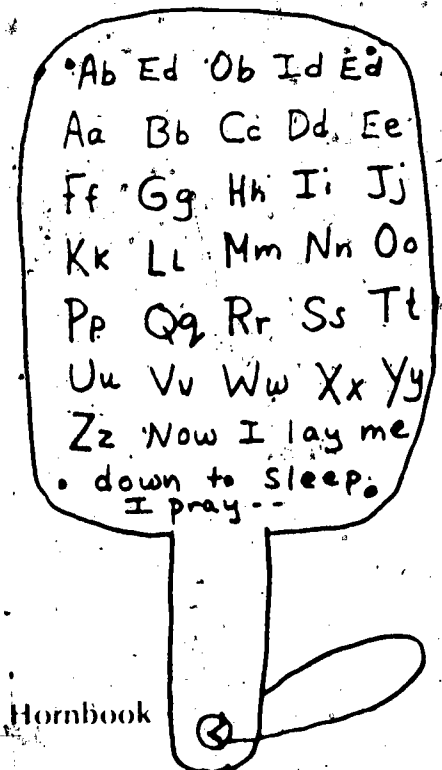 Ab Ed Ob Id Ed
Aa Bb Cc Dd Ee
Ff Gg Hh Ii Jj
Kk Ll Mm Nn Oo
Pp Qq Rr Ss Tt
Uu Vv Ww Xx Yy
Zz Now I lay me
down to sleep.
I pray--
Hornbook